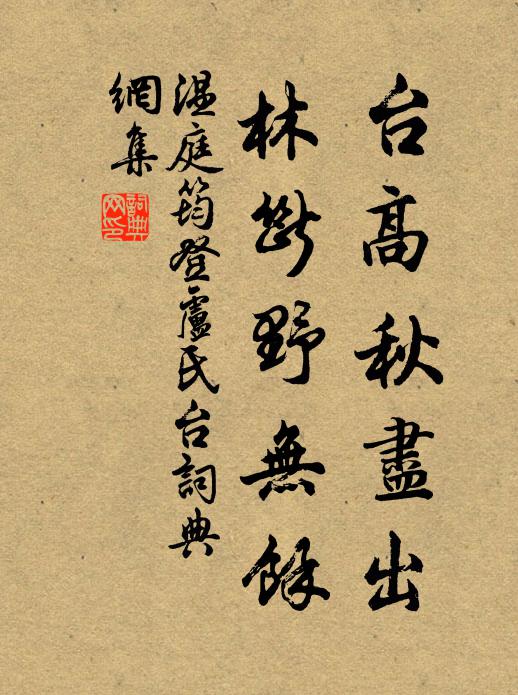 台高秋盡出
林斷野無餘
温庭筠登盧氏台詞典
網集
詞典網印